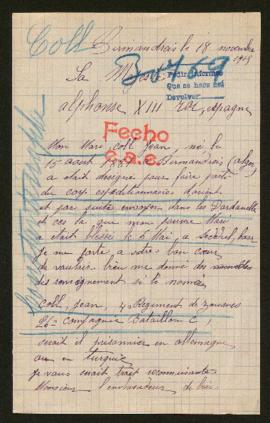 Coll
Birmandreis le 18 novembre
1915
Sa Majesté
Pedir informes
Que se hace así
Devolver
alphonse XIII roi, espagne
Fecho
Mon Mari, Coll Jean, né le
15 août 188 Birmandreis (alger)
a était désigné pour faire parti
du corp expéditionnaire d'orient
et par suite envoyer dans les Dardanelle
et ces la que mon pauvre Mari
a était blessé le 6 Mai, a Seddul, bare
Je me porte, a votre bon cœur
de vouloir bien me donné des nouvelles
des renseignement sur le nommé
Coll, Jean, 4 Régiment de zouaves
26 compagnie Bataillon C,
serait il prisonnier en allemagne
ou en turquie
Je vous serait trait reconnaisante
Monsieur l'embasadeur de bien